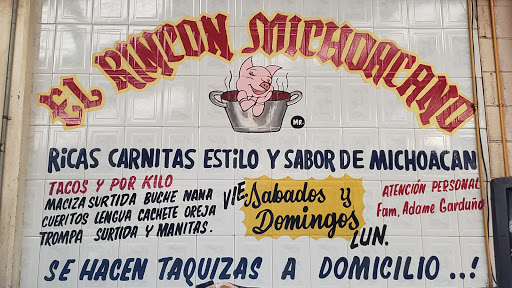 EL RINCON MICHOACANO
MR.
RICAS CARNITAS ESTILO Y SABOR DE MICHOACAN
TACOS Y POR KILO
MACIZA SURTIDA BUCHE NANA
CUERITOS LENGUA CACHETE OREJA
TROMPA SURTIDA Y MANITAS.
VIE. Sabados y
Domingos
LUN.
ATENCIÓN PERSONAL
Fam. Adame Garduño
SE HACEN TAQUIZAS A DOMICILIO ..!